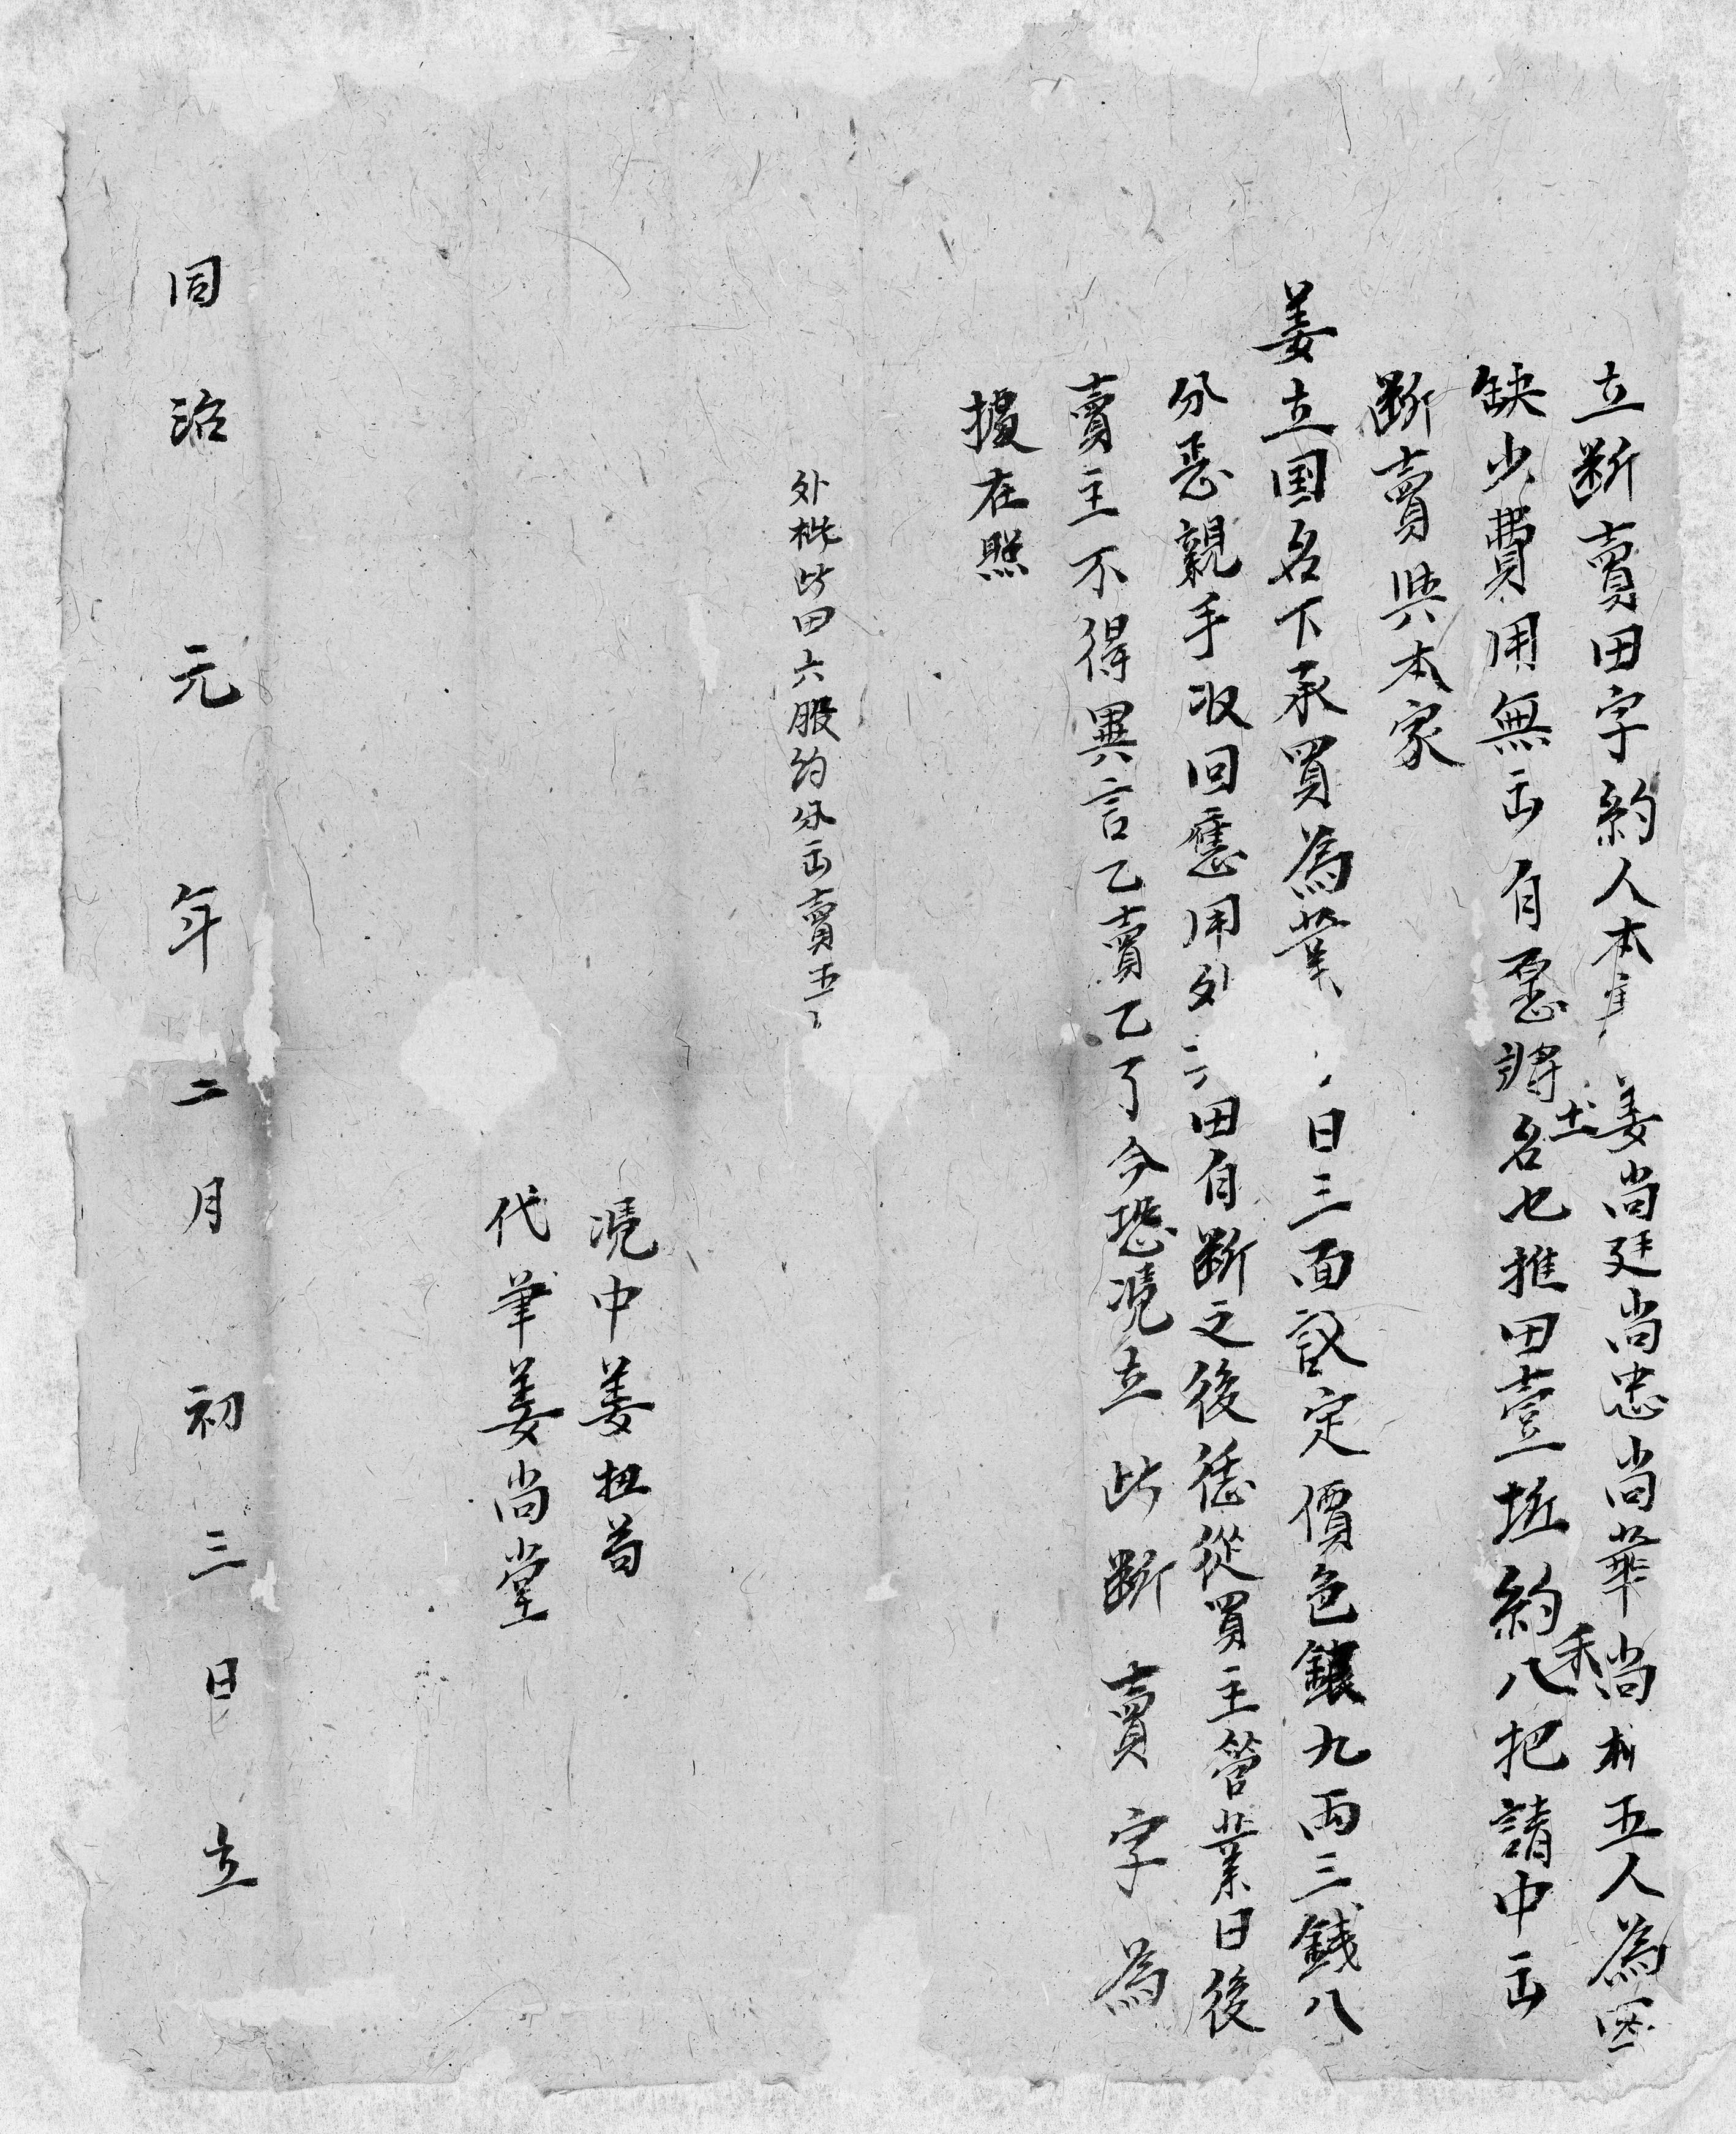 立断賣田字約人本家姜尚廷尚忠尚華尚彬五人為因
缺少費用無出自愿將土名七推田壹坵約禾八把請中出
断賣與本家
姜立国名下承買為業日三面議定價色銀九両三銭八
分悉親手收回應用外田自断之後恁從買主管業日後
賣主不得異言乙賣乙了今恐凴立此断賣字為
據在照
外枇此田六股約分出賣五
凴中姜扭苟
代筆姜尚堂
同治元年二月初三日立